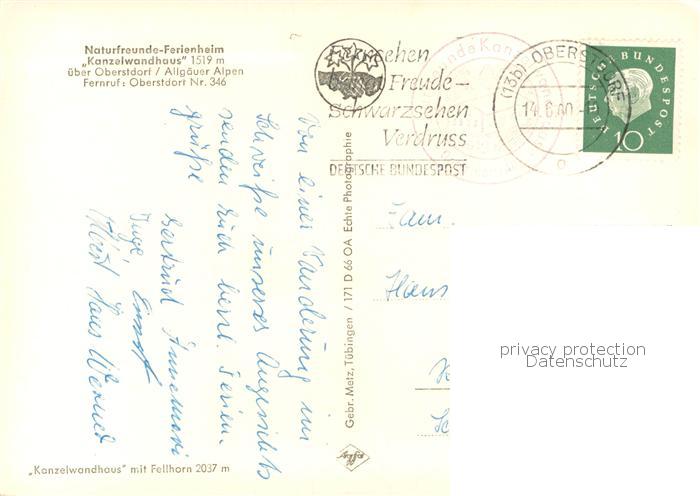 Naturfreunde-Ferienheim
„Kanzelwandhaus" 1519 m
über Oberstdorf / Allgäuer Alpen
Fernruf: Oberstdorf Nr. 346
Fernsehen
Freude–
Schwarzsehen
Verdruss
DEUTSCHE BUNDESPOST
(13b) OBERSTDORF
14.6.60
DEUTSCHE BUNDESPOST
10
Von einer Wanderung im
Schweiße unseres Angesichts
senden Euch herzl. Ferien-
grüße
Gertrud Annemarie
Inge, Ernst
Horst Hans Werner
Gebr. Metz, Tübingen / 171 D 66 OA Echte Photographie
Agfa
Fam.
Hans
privacy protection
Datenschutz
„Kanzelwandhaus" mit Fellhorn 2037 m